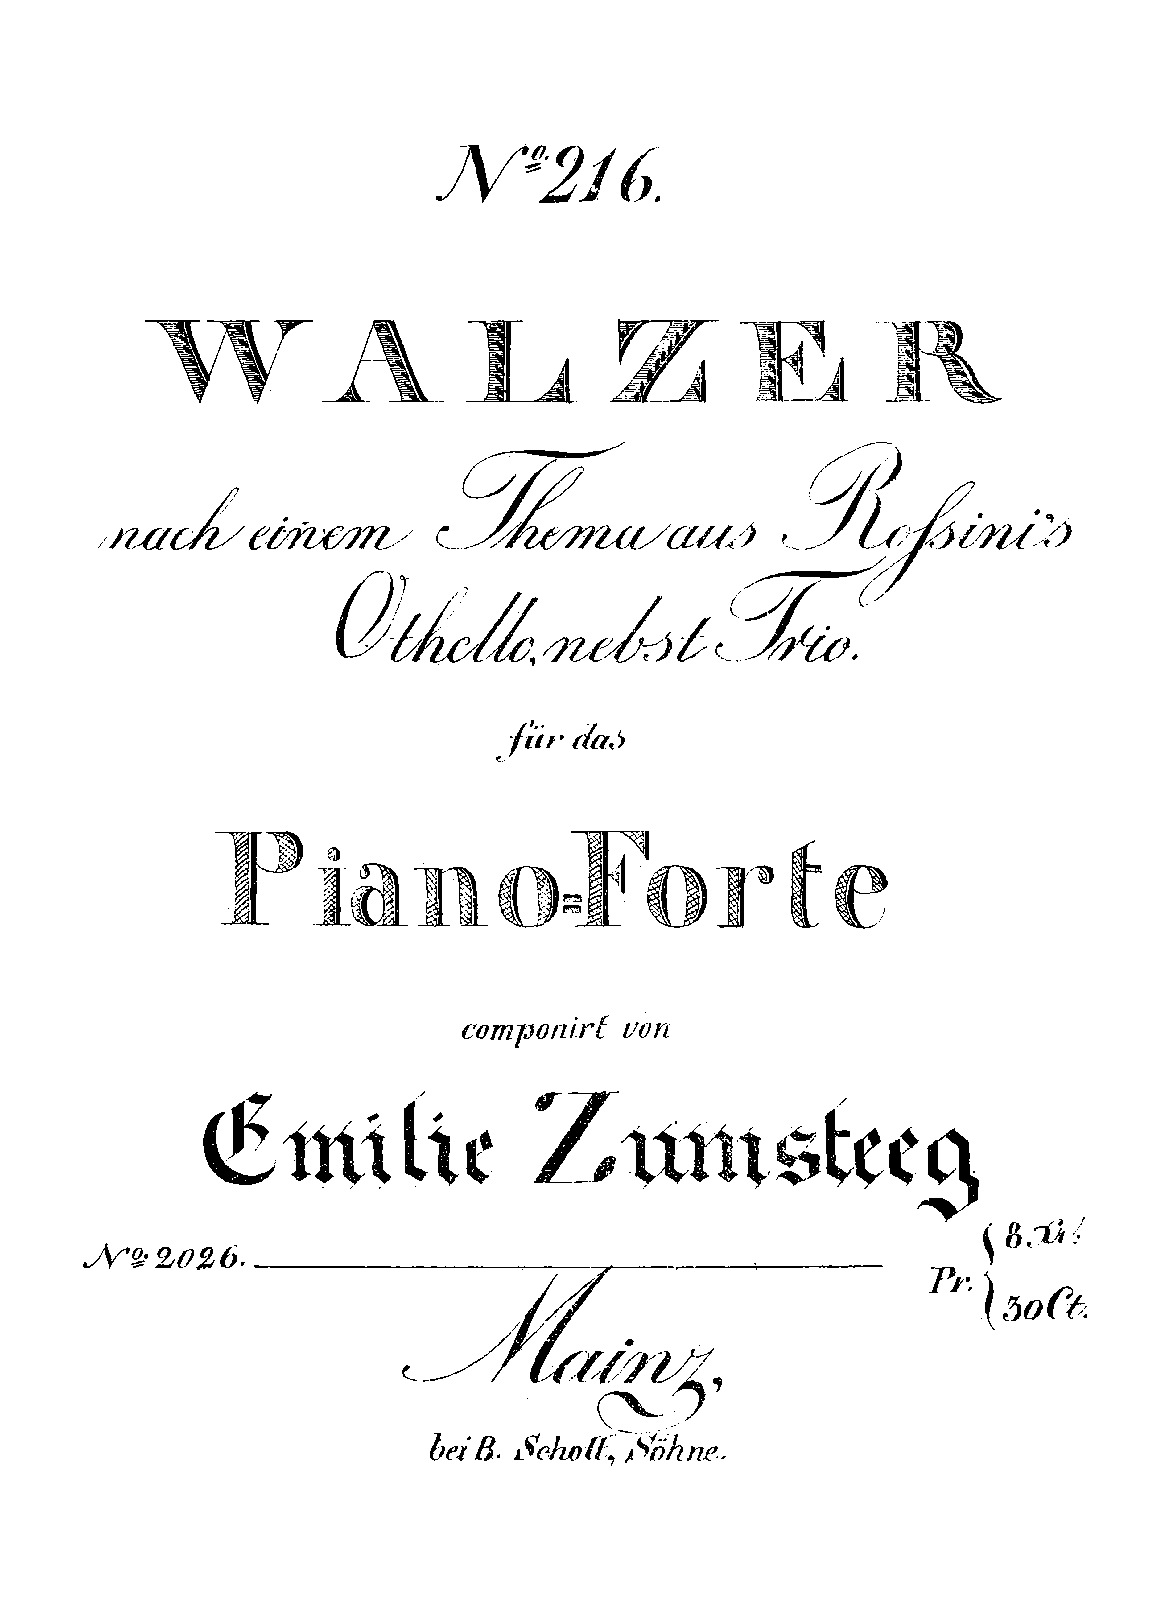 Nº 216.
WALZER
nach einem Thema aus Roſsini's
Othello, nebst Trio.
für das
Piano=Forte
componirt von
Emilie Zumsteeg
Nº 2026.
Pr. { 8. Xr.
30 Ct.
Mainz,
bei B. Schott, Söhne.